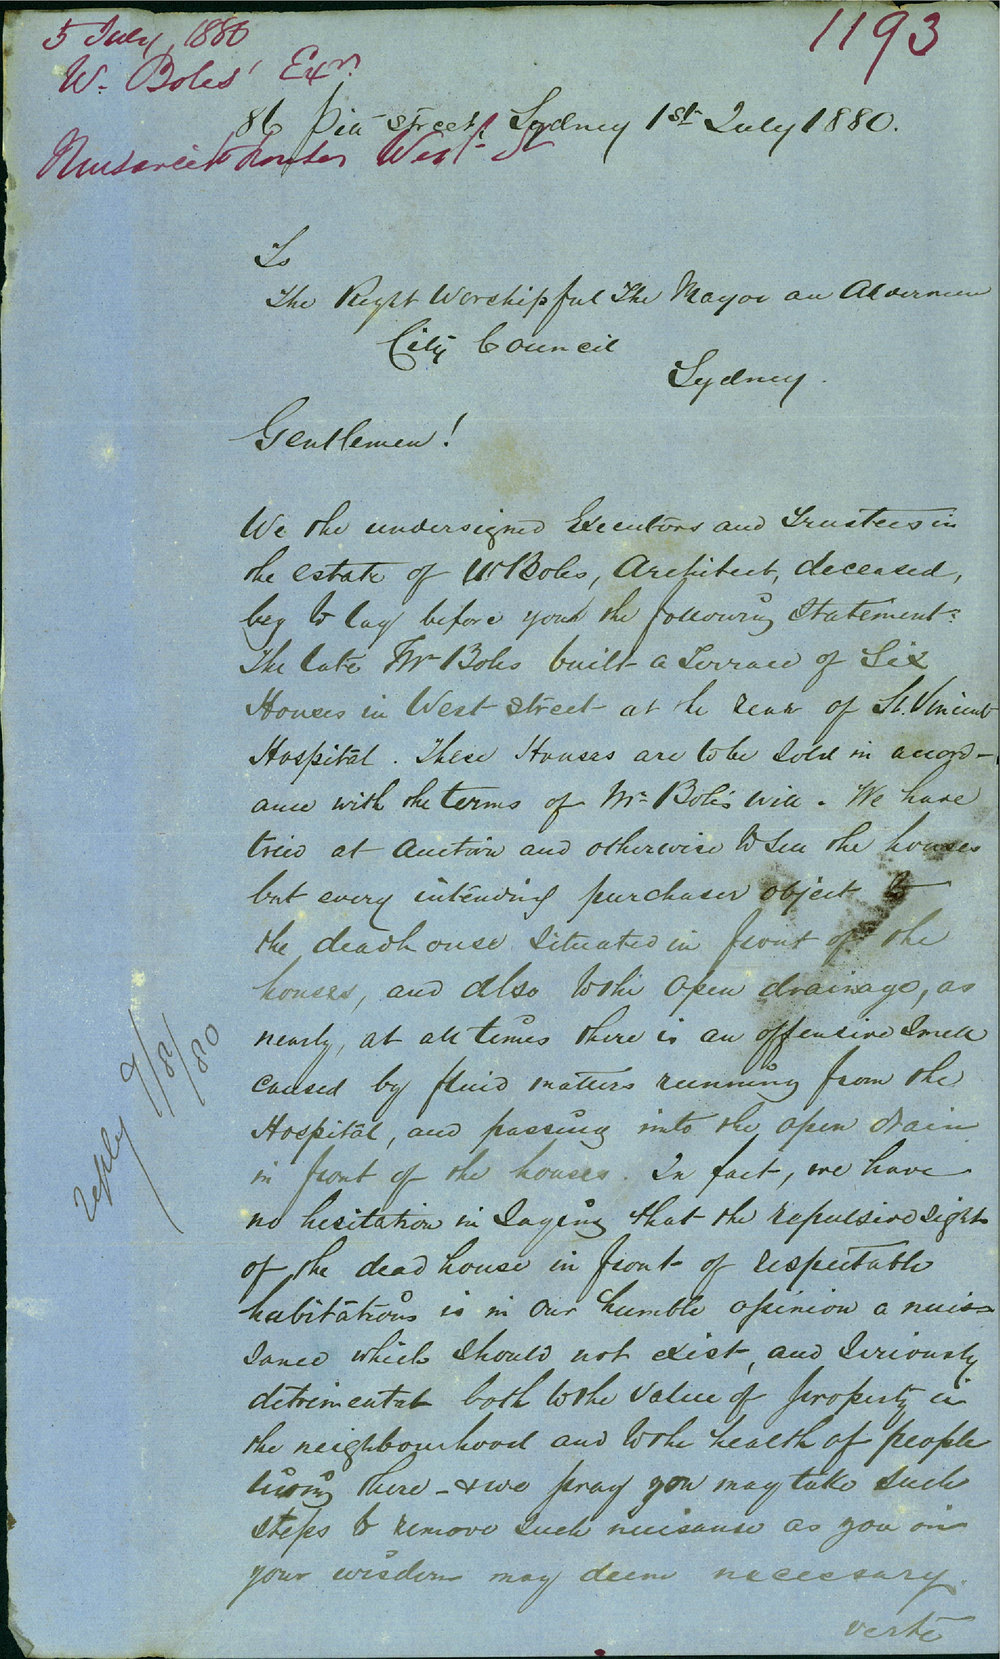 5 July 1880
1193
W. Boles' Exr.
86 Pitt street, Sydney 1st July 1880.
Nuisance West St
To
The Right Worshipful The Mayor an Aldermen
City Council
Sydney.
Gentlemen!
We the undersigned Executors and Trustees in
the estate of W. Boles, Architect, deceased,
beg to lay before your the following Statement:
The late Mr Boles built a Terrace of Six
Houses in West Street at the rear of St. Vincent
Hospital. These Houses are to be sold in accord-
ance with the terms of Mr Boles will. We have
tried at Auction and otherwise to sell the houses
but every intending purchaser object to
the deadhouse situated in front of the
houses, and also to the open drainage, as
nearly, at all times there is an offensive smell
caused by fluid matters running from the
Hospital, and passing into the open drain
in front of the houses. In fact, we have
no hesitation in saying that the repulsive sight
of the dead house in front of respectable
habitations is in our humble opinion a nuis-
sance which should not exist, and seriously
detrimental both to the value of property in
the neighbourhood and to the health of people
living there - & we pray you may take such
steps to remove such nuisance as you in
your wisdom may deem necessary.
verte
reply 9/8/80